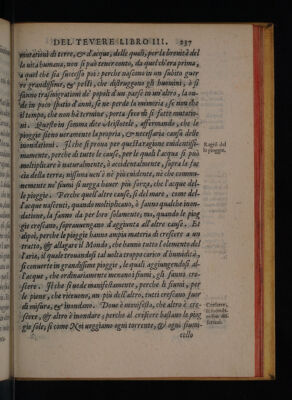 DEL TEVERE LIBRO III. 237
mutationi di terre, & d'acque; delle quali, per la breuità de
la uita humana, non si può tener conto, da quel ch'era prima,
a quel che sia successo poi: perche nascono in un subito guer
re grandissime, & pesti, che distruggono gli huomini, ò si
fanno trasmigrationi de' popoli d'un paese in un'altro, la on-
de in poco spatio d'anni, se ne perde la memoria; se non che
il tempo, che non ha termine, porta seco di sì fatte mutatio-
ni. Questo in somma dice Aristotele, affermando, che le
pioggie sieno ueramente la propria, & necessaria causa delle
inondationi. Il che si proua per questa ragione euidentissi-
mamente, perche di tutte le cause, per le quali l'acqua si può
moltiplicare ò naturalmente, ò accidentalmente, sopra la fac
cia della terra; nissuna uen'è nè più euidente, nè che commu-
nemente ne' fiumi si uegga hauer più forza, che l'acque del-
le pioggie. Perche quest'altre cause, sì del mare, come del-
l'acque nascenti, quando moltiplicano, ò fanno qualche inon-
datione, la fanno da per loro solamente; ma, quando le piog
gie crescano, soprauengano d'aggiunta all'altre cause. Et
alsoì, perche le pioggie hanno ampia materia di crescere a un
tratto, & allagare il Mondo, che hanno tutto l'elemento del
l'aria, il quale trouandosi tal uolta troppo carico d'humidità,
si conuerte in grandissime pioggie, le quali, aggiungendosi al
l'acque, che ordinariamente menano i fiumi, gli fanno cre-
scere. Il che si uede manifestamente, perche li fiumi, per
le piene, che riceuono, un più dell'altro, tutti crescano fuor
di misura, & inondano. Doue è manifesto, che altro è cre-
scere, & altro è inondare; perche al crescere bastano le piog
gie sole, sì come Noi ueggiamo ogni torrente, & ogni fiumi-
cello
Ragiõ del
le pioggie.
Crescere,